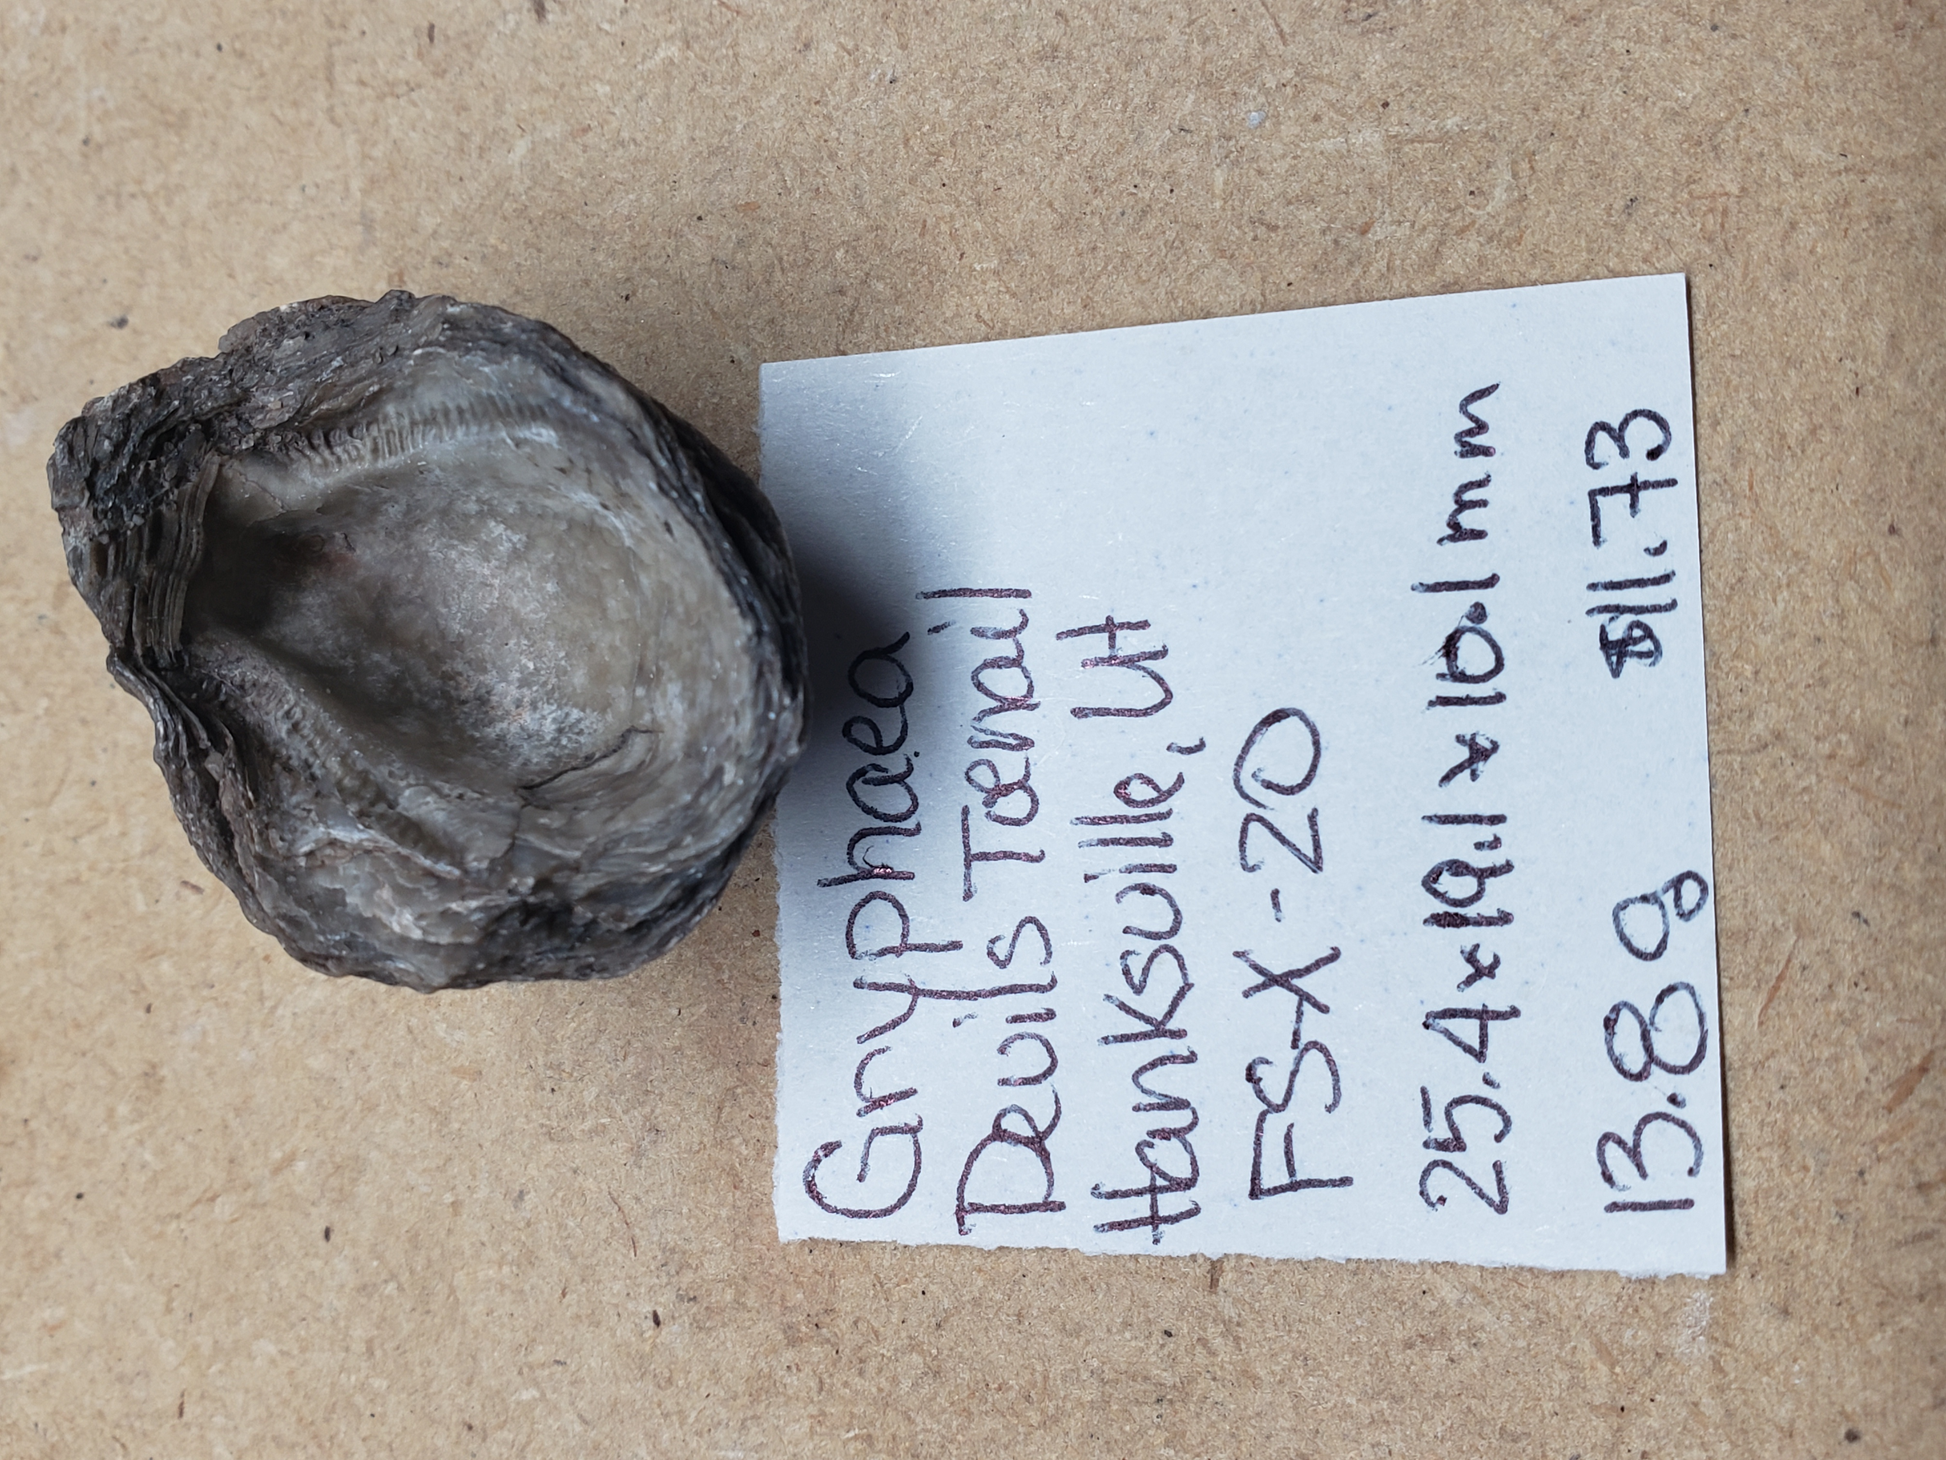 Gryphaea
Devils Toenail
Hanksville, UT
FS-X-20
25.4x19.1x10.1mm
13.8g $11.73